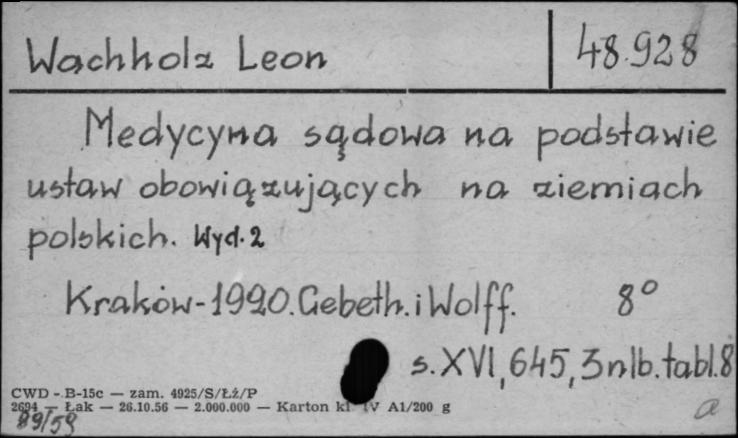 Wachholz Leon
48.928
Medycyna sądowa na podstawie
ustaw obowiązujących na ziemiach
polskich. Wyd. 2
Kraków-1920. Gebeth. i Wolff. 8°
s. XVI, 645, 3 nlb. tabl. 8
CWD - B-15c — zam. 4925/S/Łź/P
2694 — Łak — 26.10.56 — 2.000.000 — Karton kl. IV A1/200 g
89/59
a